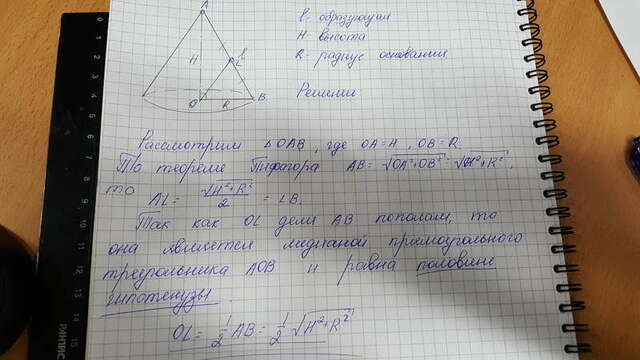 H
R
A
B
O
L
l образующая
H высота
R радиус основания
Решение
Рассмотрим △ OAB, где OA = H, OB = R
По теореме Пифагора AB = √OA²+OB² = √H²+R²,
то
AL = √H²+R² / 2 = LB.
Так как OL делит AB пополам, то
она является медианой прямоугольного
треугольника AOB и равна половине
гипотенузы
OL = 1/2 AB = 1/2 √H²+R²
0 1 2 3 4 5 6 7 8 9 10 11 12 13 14 15